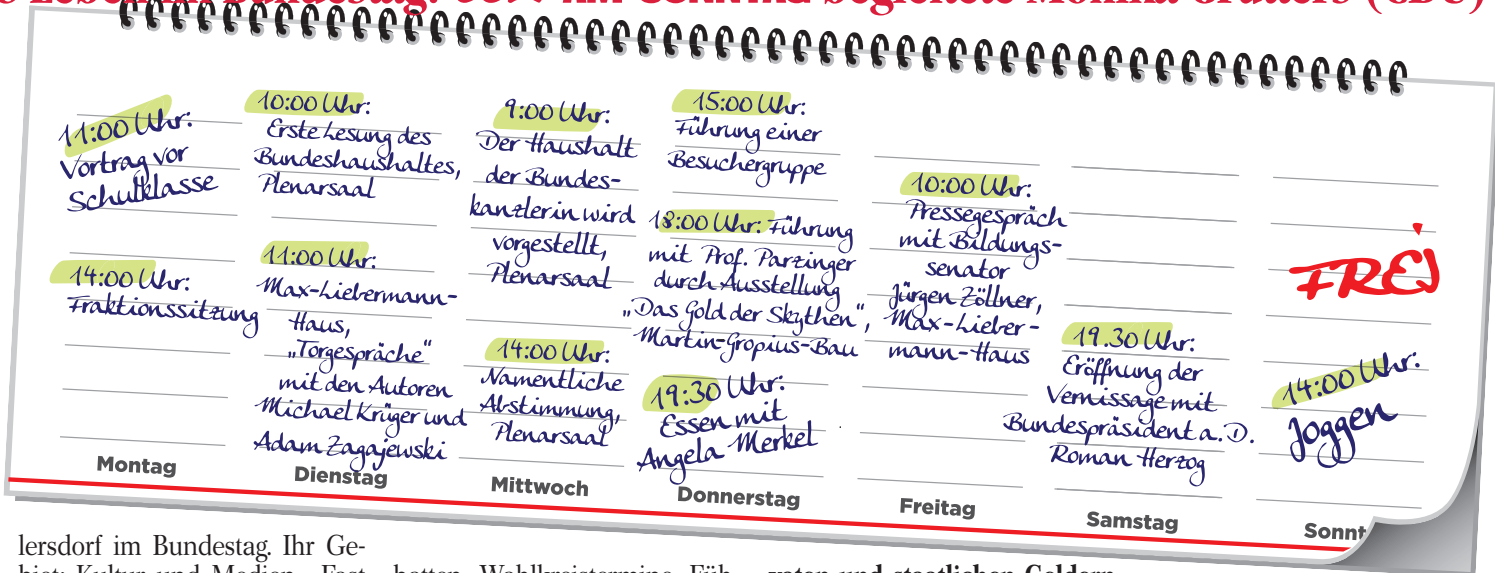 begleitete Monika Grütters (CDU)
11:00 Uhr:
Vortrag vor
Schulklasse
14:00 Uhr:
Fraktionssitzung
Montag
10:00 Uhr:
Erste Lesung des
Bundeshaushaltes,
Plenarsaal
11:00 Uhr:
Max-Liebermann-
Haus,
„Torgespräche“
mit den Autoren
Michael Krüger und
Adam Zagajewski
Dienstag
9:00 Uhr:
Der Haushalt
der Bundes-
kanzlerin wird
vorgestellt,
Plenarsaal
14:00 Uhr:
Namentliche
Abstimmung,
Plenarsaal
Mittwoch
15:00 Uhr:
Führung einer
Besuchergruppe
18:00 Uhr: Führung
mit Prof. Parzinger
durch Ausstellung
„Das Gold der Skythen“,
Martin-Gropius-Bau
19:30 Uhr:
Essen mit
Angela Merkel
Donnerstag
10:00 Uhr:
Pressegespräch
mit Bildungs-
senator
Jürgen Zöllner,
Max-Lieber-
mann-Haus
Freitag
19.30 Uhr:
Eröffnung der
Vernissage mit
Bundespräsident a. D.
Roman Herzog
Samstag
FREI
14:00 Uhr:
Joggen
Sonnt
lersdorf im Bundestag. Ihr Ge-